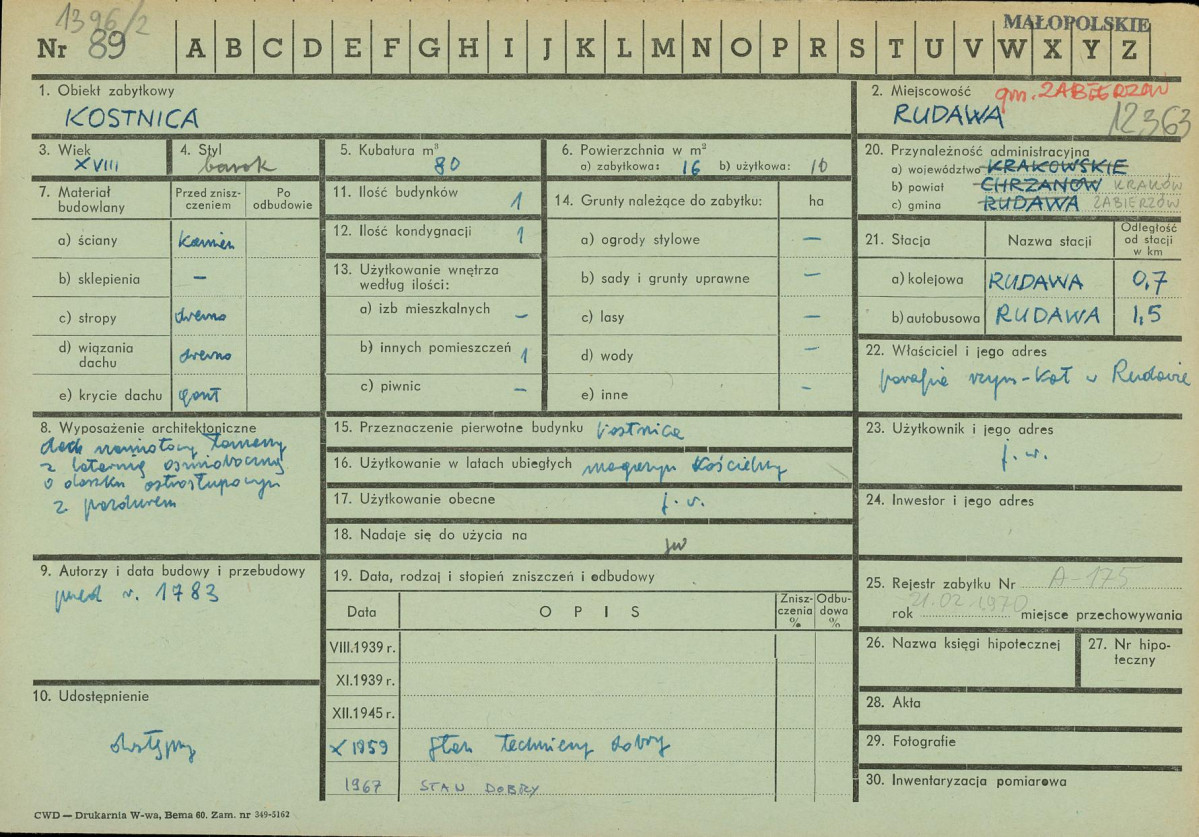 1396/2
MAŁOPOLSKIE
Nr 89 A B C D E F G H I J K L M N O P R S T U V W X Y Z
1. Obiekt zabytkowy
KOSTNICA
2. Miejscowość gm. ZABIERZÓW
RUDAWA 12363
3. Wiek
XVIII
4. Styl
barok
5. Kubatura m³
80
6. Powierzchnia w m²
a) zabytkowa: 16 b) użytkowa: 10
20. Przynależność administracyjna
a) województwo KRAKOWSKIE
b) powiat CHRZANÓW KRAKÓW
c) gmina RUDAWA ZABIERZÓW
7. Materiał budowlany
Przed zniszczeniem
Po odbudowie
a) ściany kamień
b) sklepienia –
c) stropy drewno
d) wiązania dachu drewno
e) krycie dachu gont
11. Ilość budynków 1
12. Ilość kondygnacji 1
13. Użytkowanie wnętrza
według ilości:
a) izb mieszkalnych –
b) innych pomieszczeń 1
c) piwnic –
14. Grunty należące do zabytku: ha
a) ogrody stylowe –
b) sady i grunty uprawne –
c) lasy –
d) wody –
e) inne –
21. Stacja
Nazwa stacji
Odległość od stacji w km
a) kolejowa RUDAWA 0,7
b) autobusowa RUDAWA 1,5
22. Właściciel i jego adres
parafia rzym-kat w Rudawie
8. Wyposażenie architektoniczne
dach namiotowy łamany
z latarnią ośmioboczną
o daszku ostrosłupowym
z pazdurem
15. Przeznaczenie pierwotne budynku kostnica
16. Użytkowanie w latach ubiegłych magazyn kościelny
17. Użytkowanie obecne j. w.
18. Nadaje się do użycia na jw
23. Użytkownik i jego adres
j. w.
24. Inwestor i jego adres
9. Autorzy i data budowy i przebudowy
przed r. 1783
19. Data, rodzaj i stopień zniszczeń i odbudowy
Data
OPIS
Zniszczenia %
Odbudowa %
VIII.1939 r.
XI.1939 r.
XII.1945 r.
X 1959 stan techniczny dobry
1967 STAN DOBRY
25. Rejestr zabytku Nr A-175
rok 21.02.1970 miejsce przechowywania
26. Nazwa księgi hipotecznej
27. Nr hipoteczny
28. Akta
29. Fotografie
30. Inwentaryzacja pomiarowa
10. Udostępnienie
dostępny
CWD — Drukarnia W-wa, Bema 60. Zam. nr 349-5162